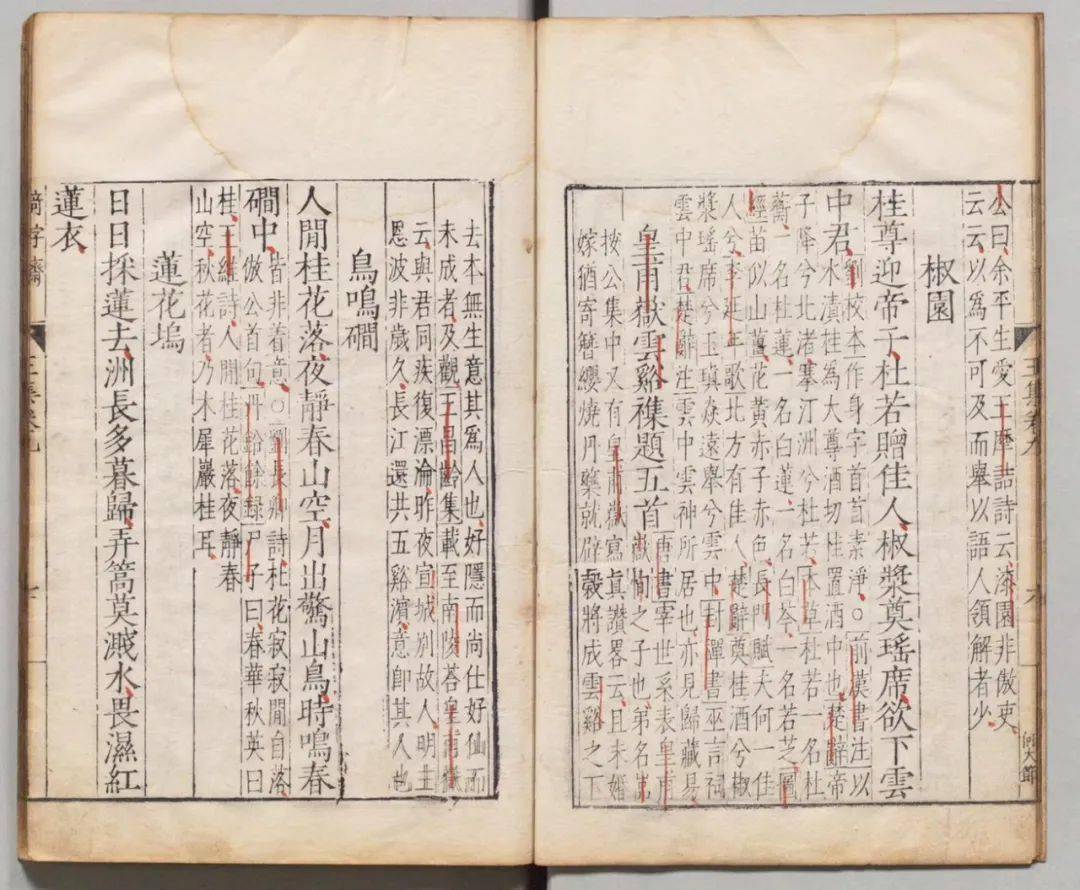 公曰余平生愛王摩詰詩云漆園非傲吏
云云以爲不可及而舉以語人領解者少
椒園
桂尊迎帝子杜若贈佳人椒漿奠瑤席欲下雲
中君劉校本作身字首首素淨○前漢書注以
水漬桂為大尊酒切桂置酒中也楚辭帝
子降兮北渚搴汀洲兮杜若本草杜若一名杜
蘅一名杜蓮一名白蓮一名白芩一名若芝圖
經苗似山薑花黃赤子赤色長門賦夫何一佳
人兮李延年歌北方有佳人楚辭奠桂酒兮椒
漿瑤席兮玉瑱焱遠舉兮雲中封禪書巫言祠
雲中君楚辭注雲中雲神所居也亦見歸藏易
皇甫嶽雲谿襍題五首唐書宰世系表皇甫
嶽恂之子也弟名崑
按公集中又有皇甫嶽寫真讚畧云且未婚
嫁猶寄簪纓燒丹藥就辟穀將成雲谿之下
王集卷九
六
何大節
去本無生意其爲人也好隱而尚仕好仙而
未成者及觀王昌齡集載至南陵荅皇甫嶽
云與君同疾復漂淪昨夜宣城別故人明主
恩波非歲久長江還共五谿濱意卽其人也
鳥鳴磵
人閒桂花落夜靜春山空月出驚山鳥時鳴春
磵中皆非着意○劉長卿詩杜花寂寂閒自落
倣公首句丹鉛餘録尸子曰春華秋英曰
桂王維詩人閒桂花落夜靜春
山空秋花者乃木犀巖桂耳
蓮花塢
日日採蓮去洲長多暮歸弄篙莫濺水畏濕紅
蓮衣
王集卷九